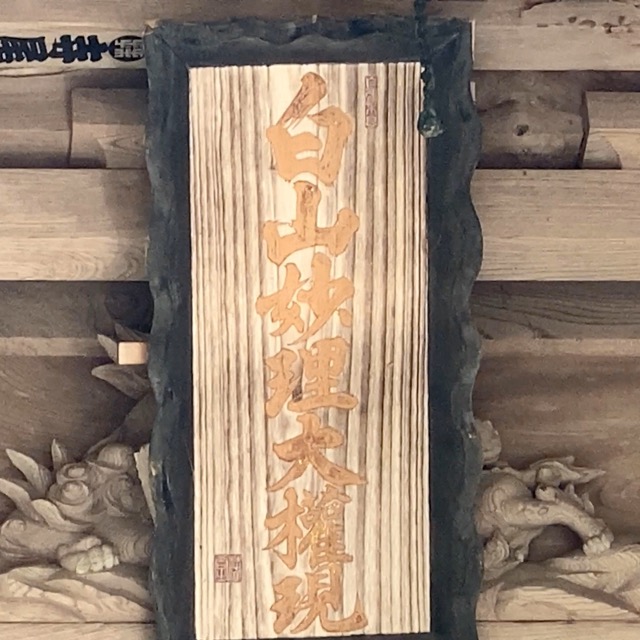 白山妙理大權現